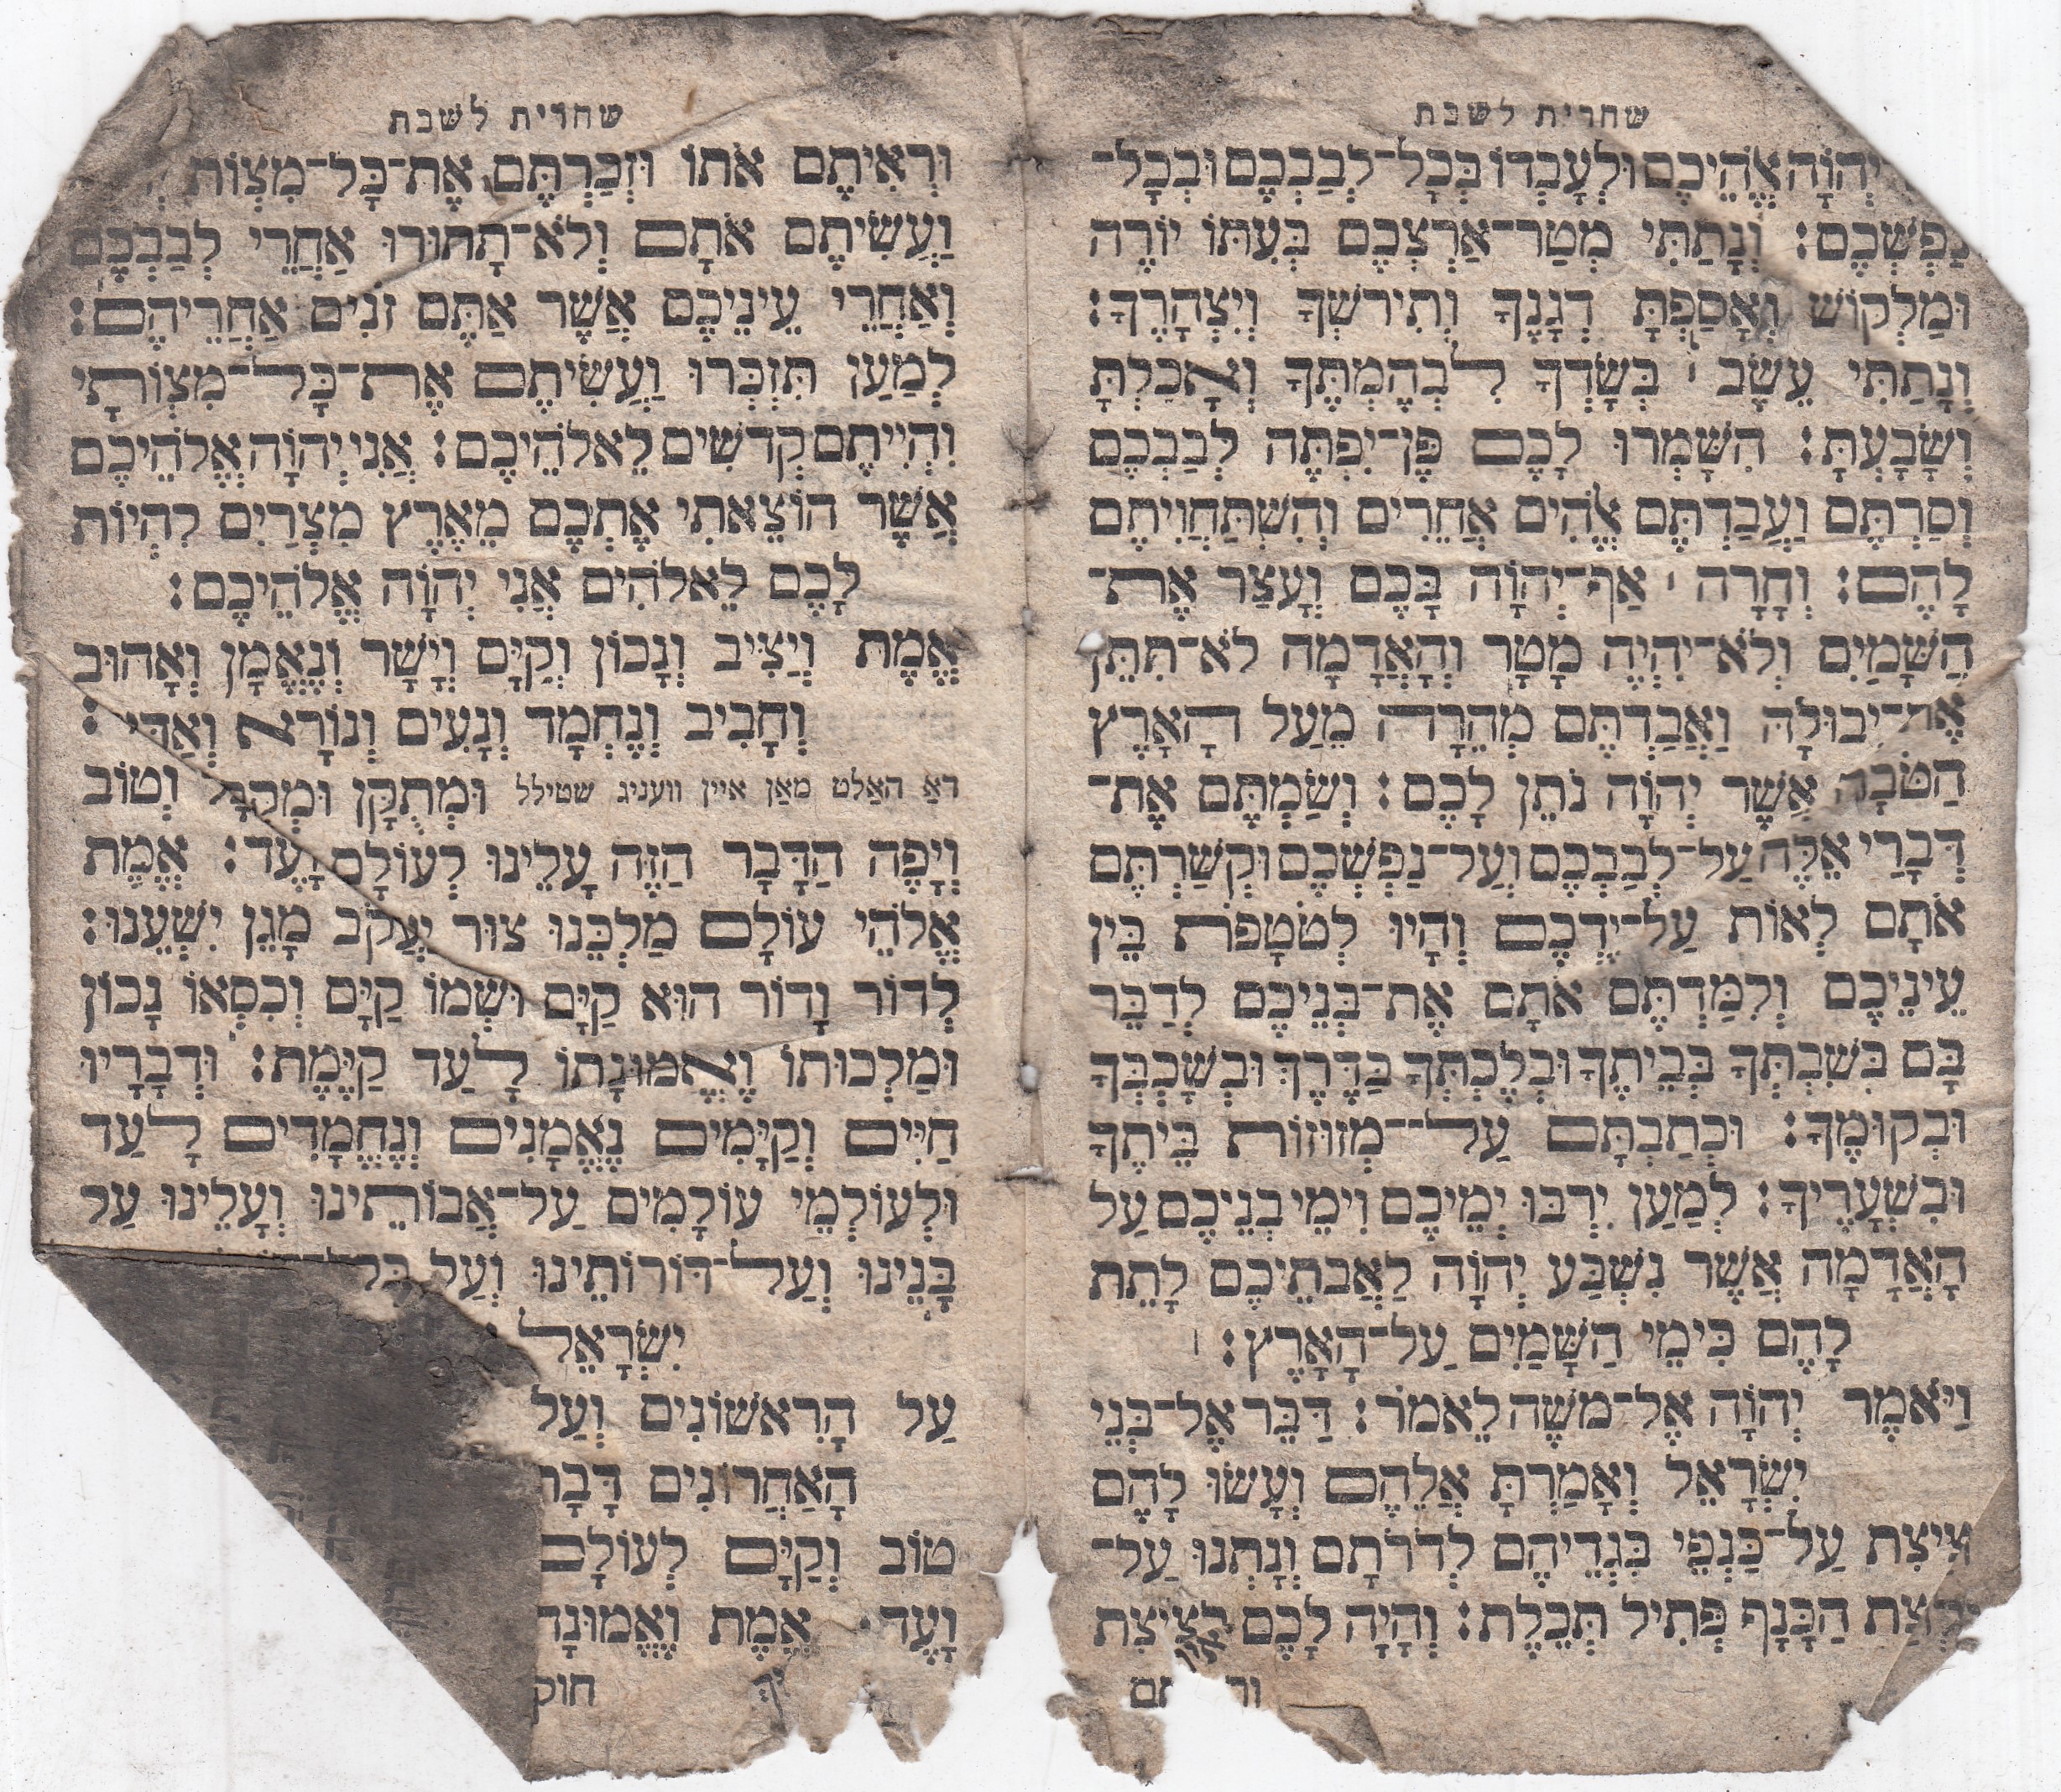 שחרית לשבת
יְהֹוָה אֱלֹהֵיכֶם וּלְעָבְדוֹ בְּכָל־לְבַבְכֶם וּבְכָל־
נַפְשְׁכֶם: וְנָתַתִּי מְטַר־אַרְצְכֶם בְּעִתּוֹ יוֹרֶה
וּמַלְקוֹשׁ וְאָסַפְתָּ דְגָנֶךָ וְתִירשְׁךָ וְיִצְהָרֶךָ:
וְנָתַתִּי עֵשֶׂב ׀ בְּשָׂדְךָ לִבְהֶמְתֶּךָ וְאָכַלְתָּ
וְשָׂבָעְתָּ: הִשָּׁמְרוּ לָכֶם פֶּן־יִפְתֶּה לְבַבְכֶם
וְסַרְתֶּם וַעֲבַדְתֶּם אֱלֹהִים אֲחֵרִים וְהִשְׁתַּחֲוִיתֶם
לָהֶם: וְחָרָה ׀ אַף־יְהֹוָה בָּכֶם וְעָצַר אֶת־
הַשָּׁמַיִם וְלֹא־יִהְיֶה מָטָר וְהָאֲדָמָה לֹא־תִתֵּן
אֶת־יְבוּלָהּ וַאֲבַדְתֶּם מְהֵרָה מֵעַל הָאָרֶץ
הַטֹּבָה אֲשֶׁר יְהֹוָה נֹתֵן לָכֶם: וְשַׂמְתֶּם אֶת־
דְּבָרַי אֵלֶּה עַל־לְבַבְכֶם וְעַל־נַפְשְׁכֶם וּקְשַׁרְתֶּם
אֹתָם לְאוֹת עַל־יֶדְכֶם וְהָיוּ לְטֹטָפֹת בֵּין
עֵינֵיכֶם וְלִמַּדְתֶּם אֹתָם אֶת־בְּנֵיכֶם לְדַבֵּר
בָּם בְּשִׁבְתְּךָ בְּבֵיתֶךָ וּבְלֶכְתְּךָ בַדֶּרֶךְ וּבְשָׁכְבְּךָ
וּבְקוּמֶךָ: וּכְתַבְתָּם עַל־־מְזוּזוֹת בֵּיתֶךָ
וּבִשְׁעָרֶיךָ: לְמַעַן יִרְבּוּ יְמֵיכֶם וִימֵי בְנֵיכֶם עַל
הָאֲדָמָה אֲשֶׁר נִשְׁבַּע יְהֹוָה לַאֲבֹתֵיכֶם לָתֵת
לָהֶם כִּימֵי הַשָּׁמַיִם עַל־הָאָרֶץ:
וַיֹּאמֶר יְהֹוָה אֶל־משֶׁה לֵּאמֹר: דַּבֵּר אֶל־בְּנֵי
יִשְׂרָאֵל וְאָמַרְתָּ אֲלֵהֶם וְעָשׂוּ לָהֶם
צִיצִת עַל־כַּנְפֵי בִגְדֵיהֶם לְדֹרֹתָם וְנָתְנוּ עַל־
צִיצִת הַכָּנָף פְּתִיל תְּכֵלֶת: וְהָיָה לָכֶם לְצִיצִת
שחרית לשבת
וּרְאִיתֶם אֹתוֹ וּזְכַרְתֶּם אֶת־כָּל־מִצְוֹת
וַעֲשִׂיתֶם אֹתָם וְלֹא־תָתוּרוּ אַחֲרֵי לְבַבְכֶם
וְאַחֲרֵי עֵינֵיכֶם אֲשֶׁר אַתֶּם זֹנִים אַחֲרֵיהֶם:
לְמַעַן תִּזְכְּרוּ וַעֲשִׂיתֶם אֶת־כָּל־מִצְוֹתָי
וִהְיִיתֶם קְדשִׁים לֵאלֹהֵיכֶם: אֲנִי יְהֹוָה אֱלֹהֵיכֶם
אֲשֶׁר הוֹצֵאתִי אֶתְכֶם מֵאֶרֶץ מִצְרַיִם לִהְיוֹת
לָכֶם לֵאלֹהִים אֲנִי יְהֹוָה אֱלֹהֵיכֶם:
אֱמֶת וְיַצִּיב וְנָכוֹן וְקַיָּם וְיָשָׁר וְנֶאֱמָן וְאָהוּב
וְחָבִיב וְנֶחְמָד וְנָעִים וְנוֹרָא וְאַדִּיר:
דאַ האַלט מאַן איין וועניג שטילל וּמְתֻקָּן וּמְקֻבָּל וְטוֹב
וְיָפֶה הַדָּבָר הַזֶּה עָלֵינוּ לְעוֹלָם וָעֶד: אֱמֶת
אֱלֹהֵי עוֹלָם מַלְכֵּנוּ צוּר יַעֲקֹב מָגֵן יִשְׁעֵנוּ:
לְדוֹר וָדוֹר הוּא קַיָּם וּשְׁמוֹ קַיָּם וְכִסְאוֹ נָכוֹן
וּמַלְכוּתוֹ וֶאֱמוּנָתוֹ לָעַד קַיֶּמֶת: וּדְבָרָיו
חַיִּים וְקַיָּמִים נֶאֱמָנִים וְנֶחֱמָדִים לָעַד
וּלְעוֹלְמֵי עוֹלָמִים עַל־אֲבוֹתֵינוּ וְעָלֵינוּ עַל
בָּנֵינוּ וְעַל־דּוֹרוֹתֵינוּ וְעַל כָּל־
יִשְׂרָאֵל
עַל הָרִאשׁוֹנִים וְעַל
הָאַחֲרוֹנִים דָּבָר
טוֹב וְקַיָּם לְעוֹלָם
וָעֶד: אֱמֶת וֶאֱמוּנָה
חוק